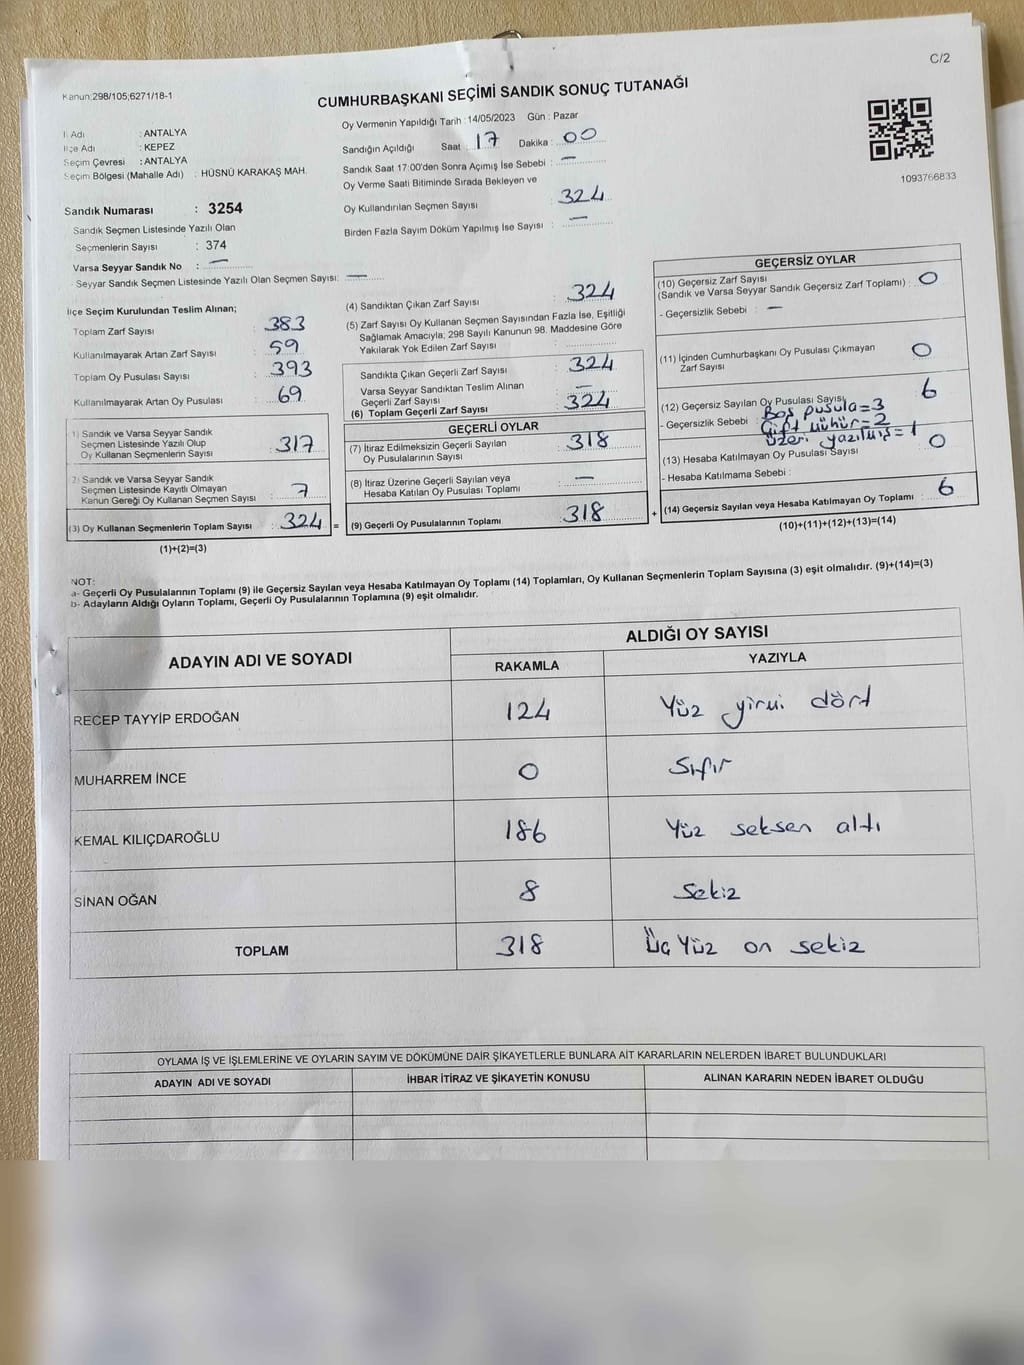 C/2
Kanun:298/105;6271/18-1
CUMHURBAŞKANI SEÇİMİ SANDIK SONUÇ TUTANAĞI
İl Adı : ANTALYA
İlçe Adı : KEPEZ
Seçim Çevresi : ANTALYA
Seçim Bölgesi (Mahalle Adı) : HÜSNÜ KARAKAŞ MAH.
Sandık Numarası : 3254
Sandık Seçmen Listesinde Yazılı Olan
Seçmenlerin Sayısı : 374
Varsa Seyyar Sandık No : —
Seyyar Sandık Seçmen Listesinde Yazılı Olan Seçmen Sayısı: —
Oy Vermenin Yapıldığı Tarih :14/05/2023 Gün : Pazar
Sandığın Açıldığı Saat : 17 Dakika : 00
Sandık Saat 17:00'den Sonra Açımış İse Sebebi : —
Oy Verme Saati Bitiminde Sırada Bekleyen ve
Oy Kullandırılan Seçmen Sayısı : 324
Birden Fazla Sayım Döküm Yapılmış İse Sayısı : —
1093766833
İlçe Seçim Kurulundan Teslim Alınan;
Toplam Zarf Sayısı : 383
Kullanılmayarak Artan Zarf Sayısı : 59
Toplam Oy Pusulası Sayısı : 393
Kullanılmayarak Artan Oy Pusulası : 69
1) Sandık ve Varsa Seyyar Sandık
Seçmen Listesinde Yazılı Olup
Oy Kullanan Seçmenlerin Sayısı : 317
2) Sandık ve Varsa Seyyar Sandık
Seçmen Listesinde Kayıtlı Olmayan
Kanun Gereği Oy Kullanan Seçmen Sayısı : 7
(3) Oy Kullanan Seçmenlerin Toplam Sayısı : 324 =
(1)+(2)=(3)
(4) Sandıktan Çıkan Zarf Sayısı : 324
(5) Zarf Sayısı Oy Kullanan Seçmen Sayısından Fazla İse, Eşitliği
Sağlamak Amacıyla; 298 Sayılı Kanunun 98. Maddesine Göre
Yakılarak Yok Edilen Zarf Sayısı :
Sandıkta Çıkan Geçerli Zarf Sayısı : 324
Varsa Seyyar Sandıktan Teslim Alınan
Geçerli Zarf Sayısı : —
(6) Toplam Geçerli Zarf Sayısı : 324
GEÇERLİ OYLAR
(7) İtiraz Edilmeksizin Geçerli Sayılan
Oy Pusulalarının Sayısı : 318
(8) İtiraz Üzerine Geçerli Sayılan veya
Hesaba Katılan Oy Pusulası Toplamı : —
(9) Geçerli Oy Pusulalarının Toplamı : 318 +
GEÇERSİZ OYLAR
(10) Geçersiz Zarf Sayısı
(Sandık ve Varsa Seyyar Sandık Geçersiz Zarf Toplamı) : 0
- Geçersizlik Sebebi : —
(11) İçinden Cumhurbaşkanı Oy Pusulası Çıkmayan
Zarf Sayısı : 0
(12) Geçersiz Sayılan Oy Pusulası Sayısı : 6
- Geçersizlik Sebebi : Boş pusula=3
Çift mühür=2
üzeri yazılmış=1
(13) Hesaba Katılmayan Oy Pusulası Sayısı : 0
- Hesaba Katılmama Sebebi :
(14) Geçersiz Sayılan veya Hesaba Katılmayan Oy Toplamı : 6
(10)+(11)+(12)+(13)=(14)
NOT:
a- Geçerli Oy Pusulalarının Toplamı (9) ile Geçersiz Sayılan veya Hesaba Katılmayan Oy Toplamı (14) Toplamları, Oy Kullanan Seçmenlerin Toplam Sayısına (3) eşit olmalıdır. (9)+(14)=(3)
b- Adayların Aldığı Oyların Toplamı, Geçerli Oy Pusulalarının Toplamına (9) eşit olmalıdır.
ADAYIN ADI VE SOYADI
ALDIĞI OY SAYISI
RAKAMLA YAZIYLA
RECEP TAYYİP ERDOĞAN 124 Yüz yirmi dört
MUHARREM İNCE 0 Sıfır
KEMAL KILIÇDAROĞLU 186 Yüz seksen altı
SİNAN OĞAN 8 Sekiz
TOPLAM 318 Üç Yüz on sekiz
OYLAMA İŞ VE İŞLEMLERİNE VE OYLARIN SAYIM VE DÖKÜMÜNE DAİR ŞİKAYETLERLE BUNLARA AİT KARARLARIN NELERDEN İBARET BULUNDUKLARI
ADAYIN ADI VE SOYADI İHBAR İTİRAZ VE ŞİKAYETİN KONUSU ALINAN KARARIN NEDEN İBARET OLDUĞU